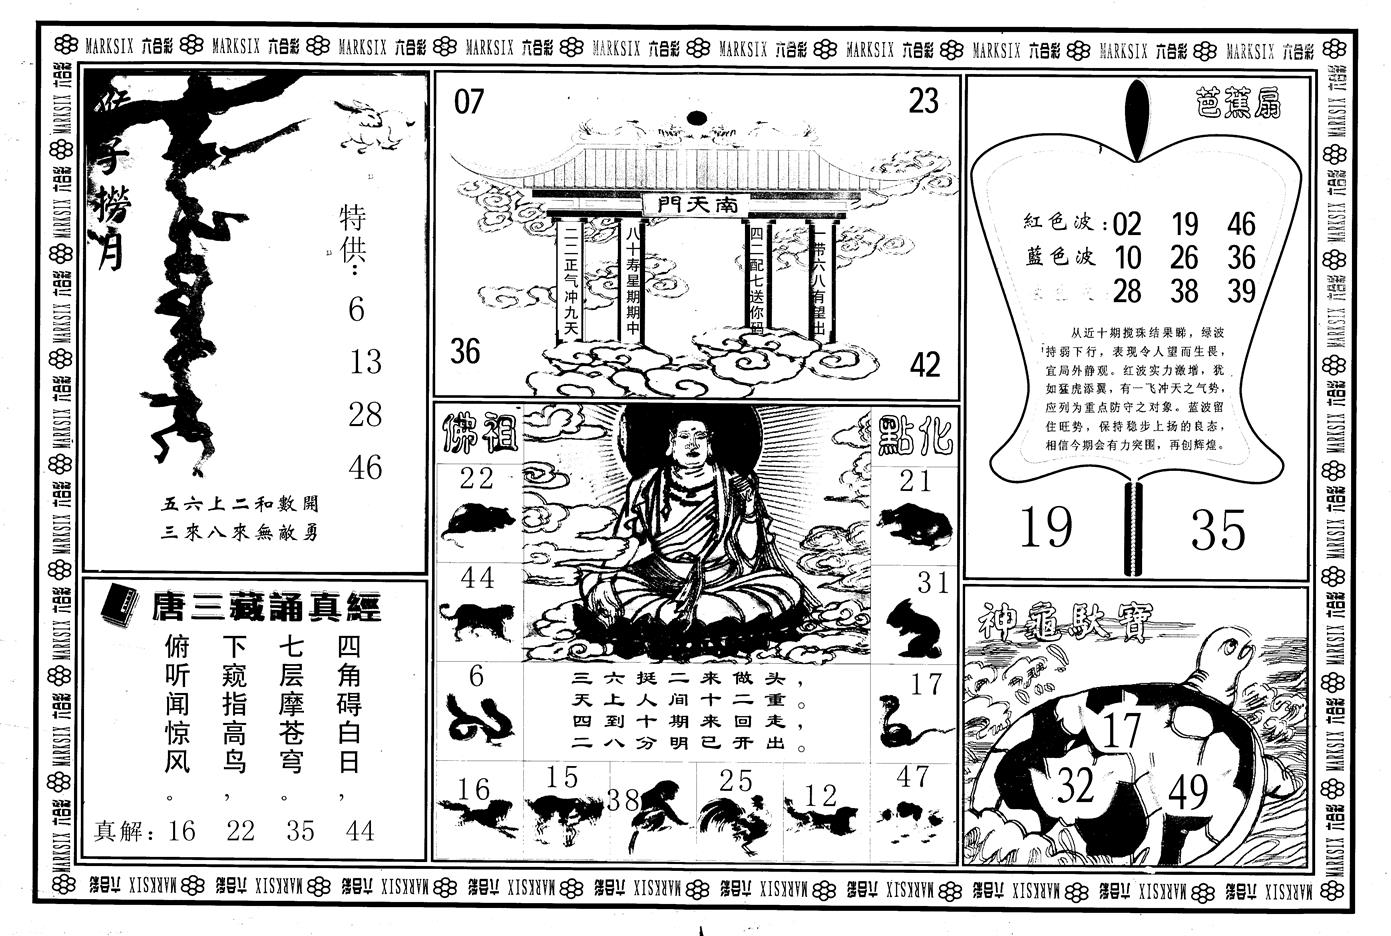 MARKSIX 六合彩 MARKSIX 六合彩 MARKSIX 六合彩 MARKSIX 六合彩 MARKSIX 六合彩 MARKSIX 六合彩 MARKSIX 六合彩 MARKSIX 六合彩 MARKSIX 六合彩 MARKSIX 六合彩
猴子撈月
特供：
6
13
28
46
五六上二和數開
三來八來無敵勇
唐三藏誦真經
四角碍白日，
七层摩苍穹。
下窥指高鸟，
俯听闻惊风。
真解：16 22 35 44
07 23
南天門
二二正气冲九天
八十寿星期期中
四二配七送你码
一带六八有望出
36 42
佛祖 點化
22 21
44 31
6 17
三六挺二来做头，
天上人间十二重。
四到十期来回走，
二八分明已开出。
16 15 38 25 12 47
芭蕉扇
紅色波：02 19 46
藍色波 10 26 36
28 38 39
从近十期搅珠结果睇，绿波
持弱下行，表现令人望而生畏，
宜局外静观。红波实力激增，犹
如猛虎添翼，有一飞冲天之气势，
应列为重点防守之对象。蓝波留
住旺势，保持稳步上扬的良态，
相信今期会有力突围，再创辉煌。
19 35
神龜馱寶
17
32 49
MARKSIX 六合彩 MARKSIX 六合彩 MARKSIX 六合彩 MARKSIX 六合彩 MARKSIX 六合彩 MARKSIX 六合彩 MARKSIX 六合彩 MARKSIX 六合彩 MARKSIX 六合彩 MARKSIX 六合彩